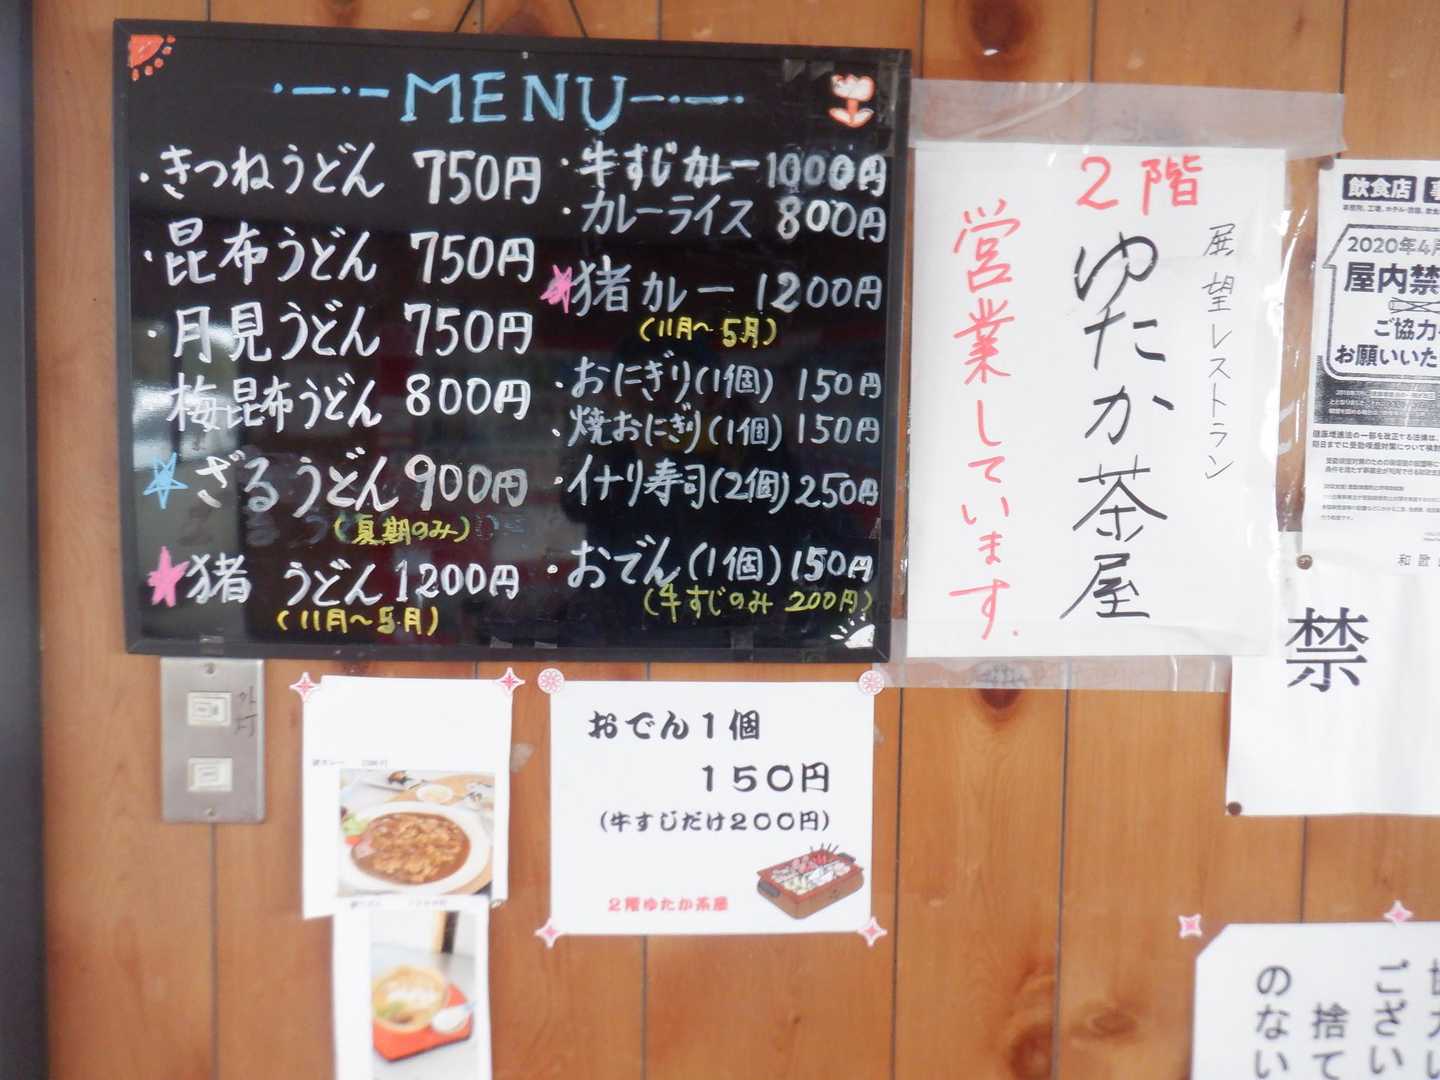 MENU
・きつねうどん 750円
・昆布うどん 750円
・月見うどん 750円
梅昆布うどん 800円
ざるうどん 900円
(夏期のみ)
猪 うどん 1200円
(11月〜5月)
・牛すじカレー 1000円
・カレーライス 800円
猪カレー 1200円
(11月〜5月)
・おにぎり(1個) 150円
・焼おにぎり(1個) 150円
・イナリ寿司(2個) 250円
・おでん(1個) 150円
(牛すじのみ 200円)
2階
展望レストラン
ゆたか茶屋
営業しています.
飲食店
2020年4月
屋内禁
ご協力
お願いいた
禁
外灯
おでん1個
150円
(牛すじだけ200円)
2階ゆたか茶屋
ござい
捨て
のない